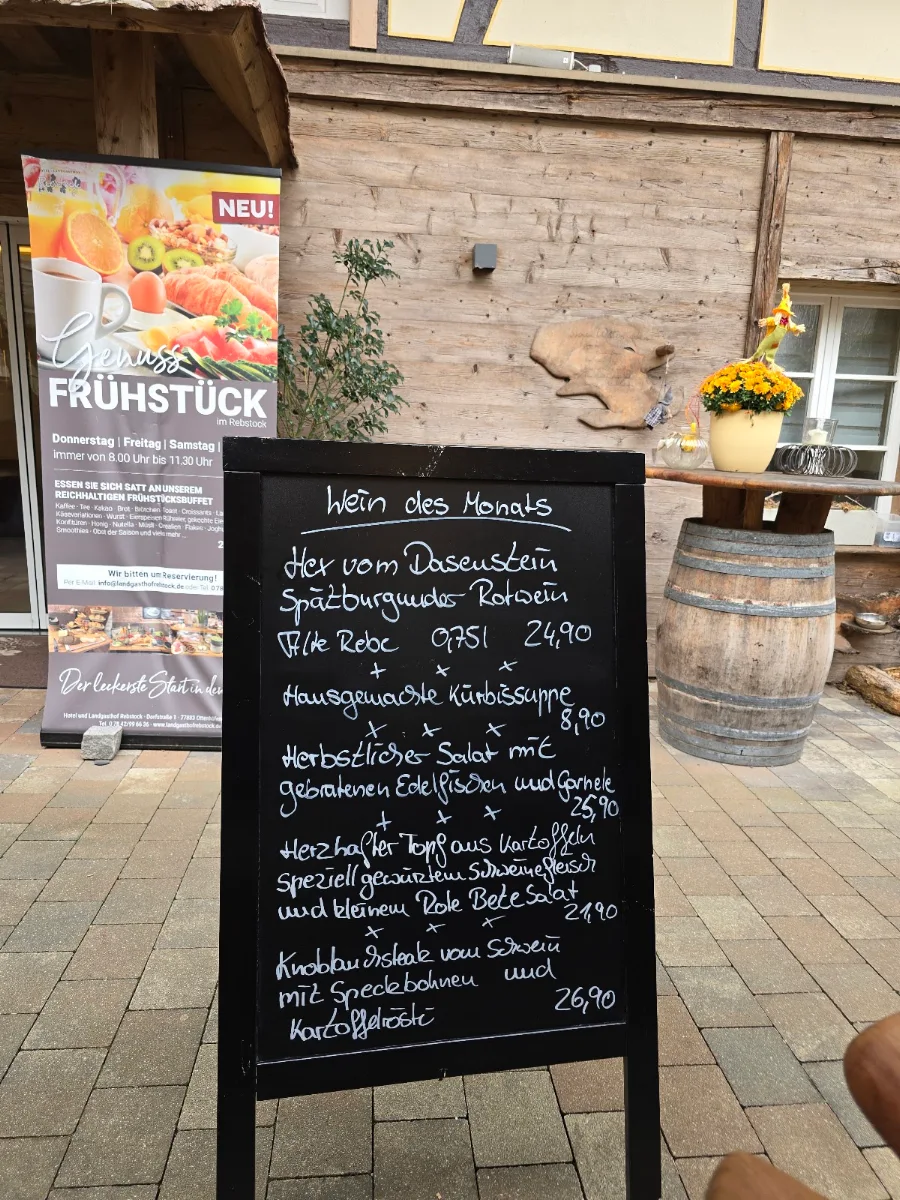 NEU!
Genuss
FRÜHSTÜCK
im Rebstock
Donnerstag | Freitag | Samstag |
immer von 8.00 Uhr bis 11.30 Uhr
ESSEN SIE SICH SATT AN UNSEREM
REICHHALTIGEN FRÜHSTÜCKSBUFFET
Kaffee · Tee · Kakao · Brot · Brötchen · Toast · Croissants ·
Käsevariationen · Wurst ·
Konfitüren · Honig · Nutella · Müsli ·
Smoothies · Obst der Saison und vieles mehr ...
Wir bitten um Reservierung!
Per E-Mail info@landgasthofrebstock.de oder Tel.
Der leckerste Start in den
Hotel und Landgasthof Rebstock ·
Wein des Monats
Hex vom Dasenstein
Spätburgunder Rotwein
Alte Rebe 0,75l 24,90
+ + +
Hausgemachte Kürbissuppe
8,90
x x x
Herbstlicher Salat mit
gebratenen Edelfischen und Garnele
25,90
+ + x
Herzhafter Topf aus Kartoffeln
speziell gewürztem Schweinefleisch
und kleinem Rote Bete Salat
21,90
x x x
Knoblauchsteak vom Schwein
mit Speckbohnen und
Kartoffelrösti 26,90